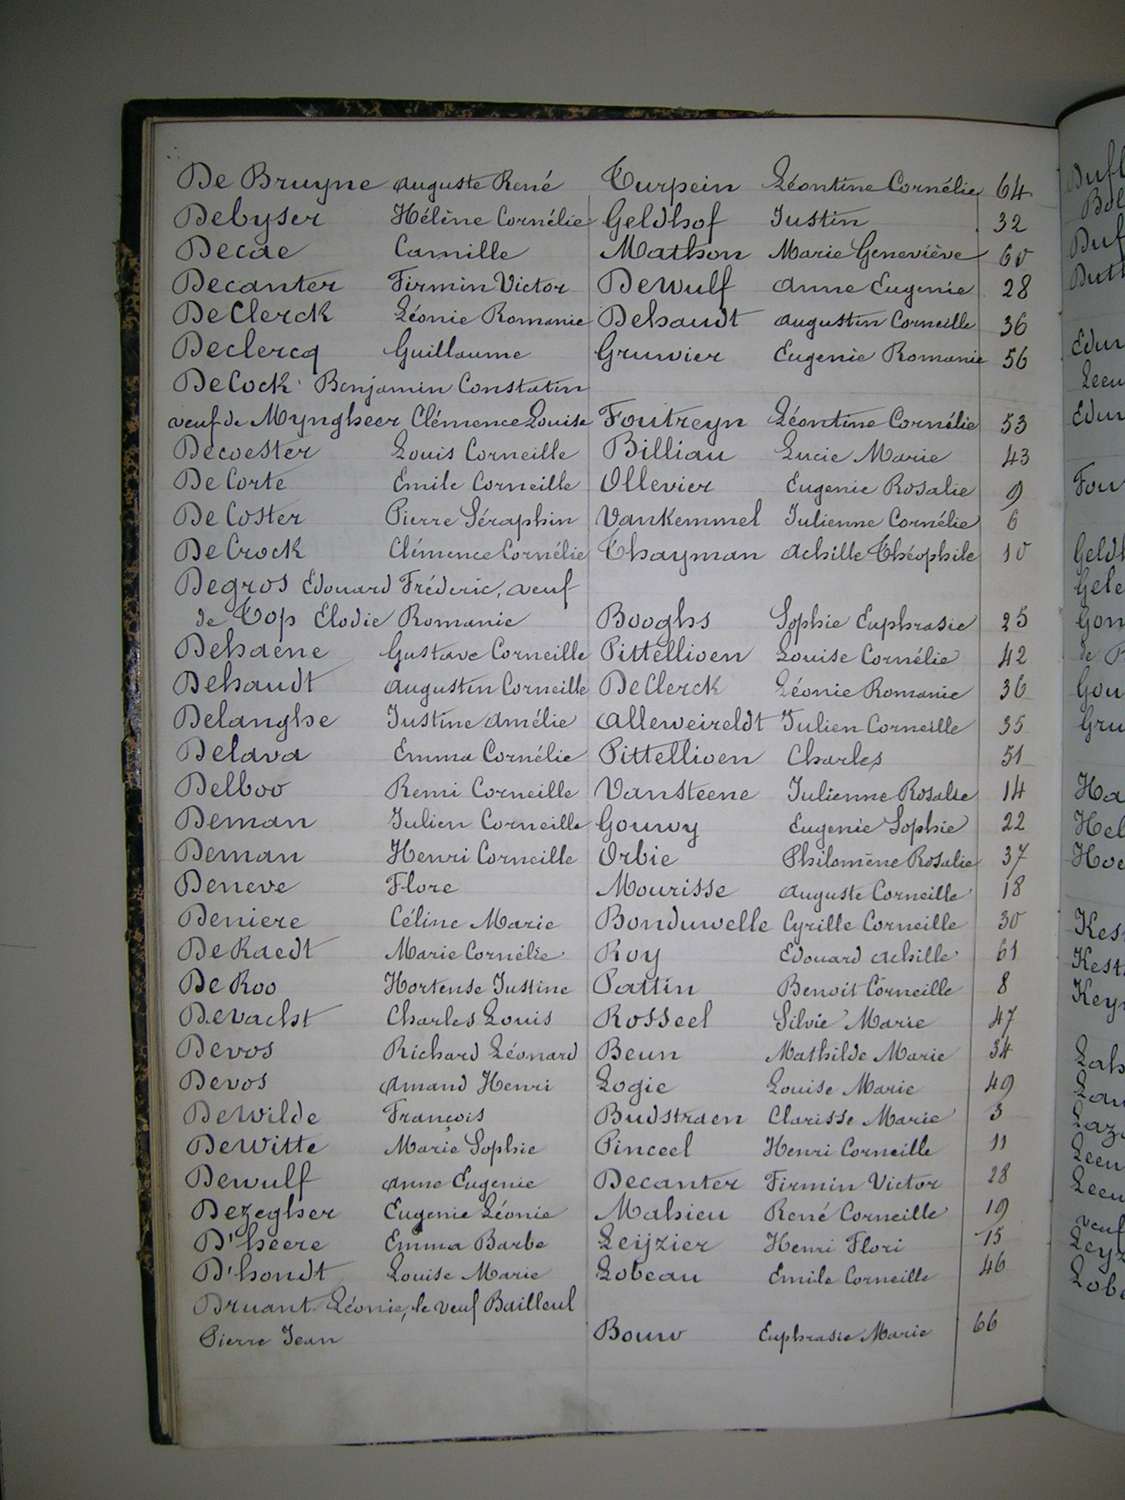 De Bruyne Auguste René Turpein Léontine Cornélie 64
Debyser Hélène Cornélie Geldhof Justin 32
Decae Camille Mathon Marie Geneviève 60
Decanter Firmin Victor Dewulf Anne Eugenie 28
De Clerck Léonie Romanie Dehaudt Augustin Corneille 36
Declercq Guillaume Gruwier Eugenie Romanie 56
De Cock Benjamin Constatin
veuf de Myngheer Clémence Louise Foutreyn Léontine Cornélie 53
Decoester Louis Corneille Billiau Lucie Marie 43
De Corte Emile Corneille Ollevier Eugenie Rosalie 9
De Coster Pierre Séraphin Vankemmel Julienne Cornélie 6
De Crock Clémence Cornélie Thayman Achille Théophile 10
Degros Edouard Fréderic, veuf
de Top Elodie Romanie Booghs Sophie Euphrasie 25
Dehaene Gustave Corneille Pittellioen Louise Cornélie 42
Dehaudt Augustin Corneille De Clerck Léonie Romanie 36
Delanghe Justine Amélie Alleweireldt Julien Corneille 35
Delava Emma Cornélie Pittellioen Charles 51
Delboo Remi Corneille Vansteene Julienne Rosalie 14
Deman Julien Corneille Gouwy Eugenie Sophie 22
Deman Henri Corneille Orbie Philomène Rosalie 37
Deneve Flore Mourisse Auguste Corneille 18
Deniere Céline Marie Bonduwelle Cyrille Corneille 30
De Raedt Marie Cornélie Roy Edouard Achille 61
De Roo Hortense Justine Pattin Benoit Corneille 8
Devacht Charles Louis Rosseel Silvie Marie 47
Devos Richard Léonard Beun Mathilde Marie 34
Devos Amand Henri Logie Louise Marie 49
De Wilde François Budstraen Clarisse Marie 3
De Witte Marie Sophie Pinceel Henri Corneille 11
Dewulf Anne Eugenie Decanter Firmin Victor 28
Dezegher Eugenie Léonie Mahieu René Corneille 19
D'heere Emma Barbe Leijzier Henri Flori 15
D'hondt Louise Marie Lobeau Emile Corneille 46
Druant Léonie, le veuf Bailleul
Pierre Jean Bouw Euphrasie Marie 66